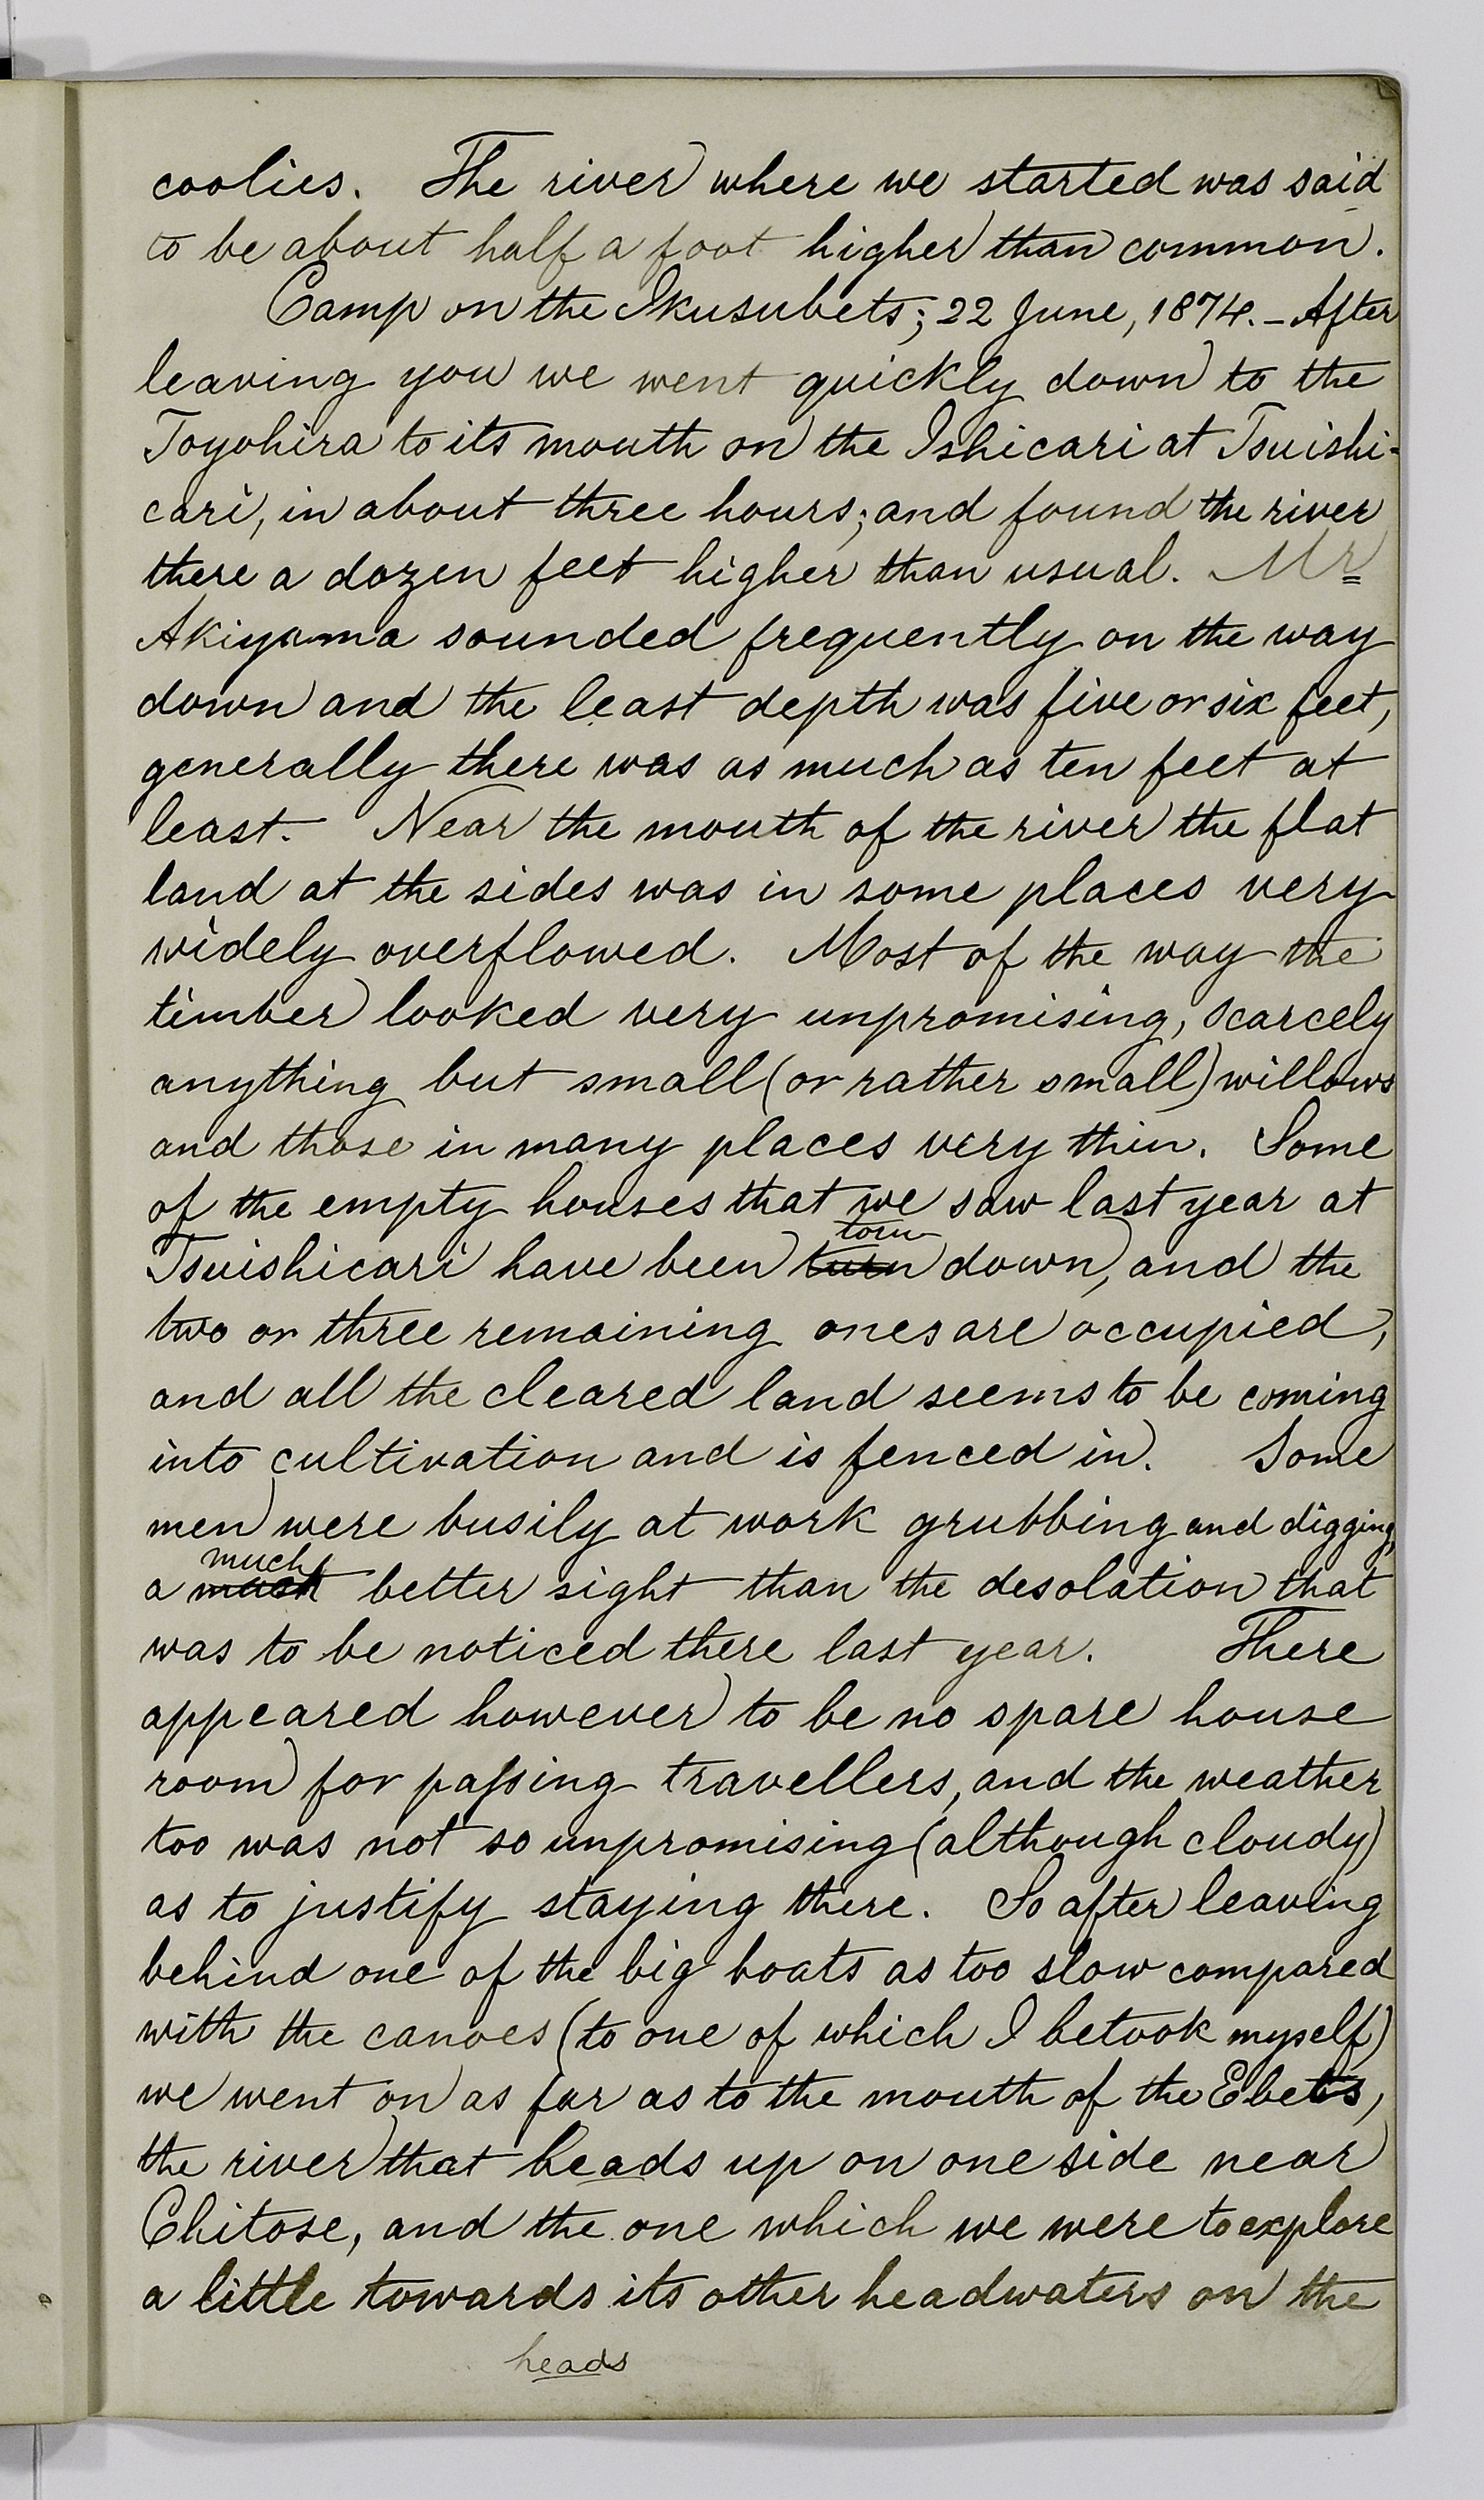 coolies. The river where we started was said
to be about half a foot higher than common.
Camp on the Ikusubets; 22 June, 1874. – After
leaving you we went quickly down to the
Toyohira to its mouth on the Ishicari at Tsuishi-
cari, in about three hours; and found the river
there a dozen feet higher than usual. Mr
Akiyama sounded frequently on the way
down and the least depth was five or six feet,
generally there was as much as ten feet at
least. Near the mouth of the river the flat
land at the sides was in some places very
widely overflowed. Most of the way the
timber looked very unpromising, scarcely
anything but small (or rather small) willows
and those in many places very thin. Some
of the empty houses that we saw last year at
torn
Tsuishicari have been turn down, and the
two or three remaining ones are occupied,
and all the cleared land seems to be coming
into cultivation and is fenced in. Some
men were busily at work grubbing and digging,
much
a better sight than the desolation that
was to be noticed there last year. There
appeared however to be no spare house
room for passing travellers, and the weather
too was not so unpromising (although cloudy)
as to justify staying there. So after leaving
behind one of the big boats as too slow compared
with the canoes (to one of which I betook myself)
we went on as far as to the mouth of the Ebets,
the river that heads up on one side near
Chitose, and the one which we were to explore
a little towards its other headwaters on the
heads